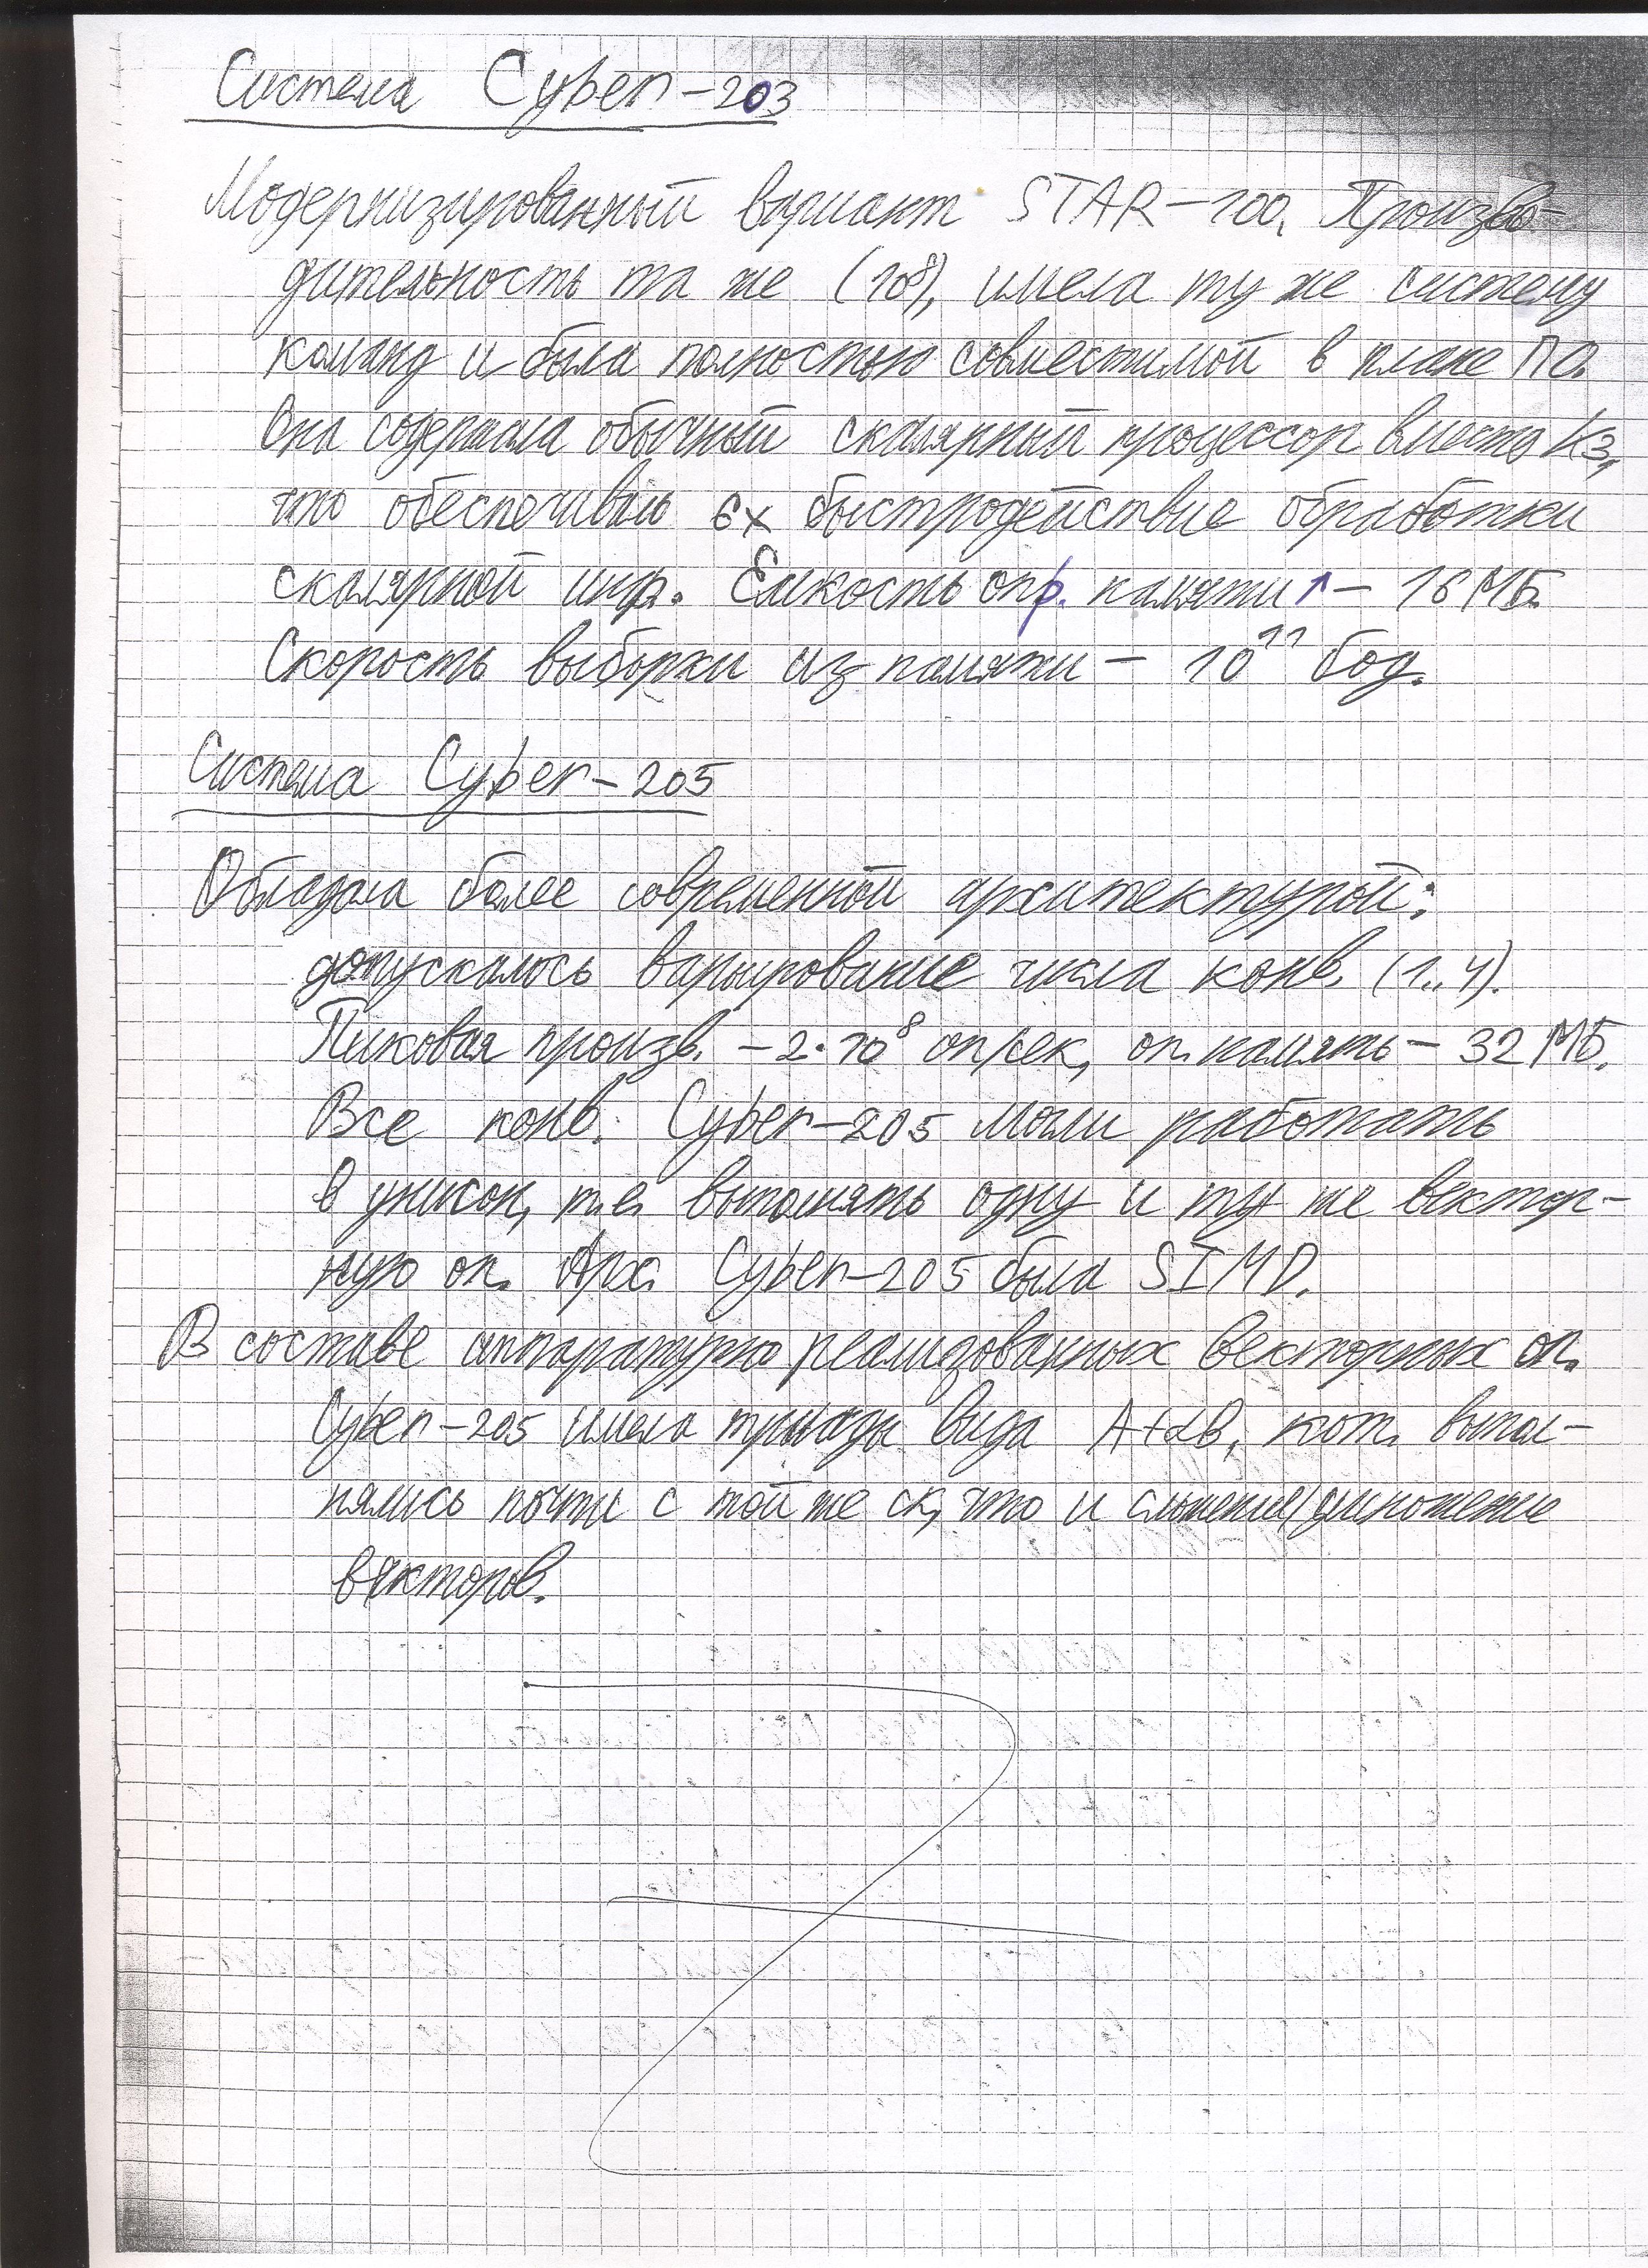 Система Cyber-203
Модернизированный вариант STAR-100. Произво-
дительность та же (10⁸), имела ту же систему
команд и была полностью совместимой в плане ПО.
Она содержала обычный скалярный процессор вместо К3,
что обеспечивало 6х быстродействие обработки
скалярной инф. Емкость опр. памяти ↑ - 16 МБ.
Скорость выборки из памяти - 10¹¹ бод.
Система Cyber-205
Обладала более современной архитектурой:
допускалось варьирование числа конв. (1..4).
Пиковая произв. - 2·10⁸ оп/сек, оп. память - 32 МБ.
Все конв. Cyber-205 могли работать
в унисон, т.е. выполнять одну и ту же вектор-
ную оп. Арх. Cyber-205 была SIMD.
В составе аппаратурно реализованных векторных оп.
Cyber-205 имела триады вида A+αB, кот. выпол-
нялись почти с той же ск, что и сложение/умножение
векторов.